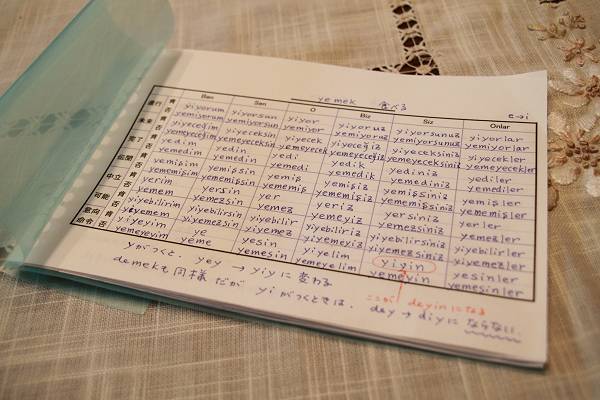 yemek 食べる e→i
Ben Sen O Biz Siz Onlar
進行 肯 yiyorum yiyorsun yiyor yiyoruz yiyorsunuz yiyorlar
否 yemiyorum yemiyorsun yemiyor yemiyoruz yemiyorsunuz yemiyorlar
未来 肯 yiyeceğim yiyeceksin yiyecek yiyeceğiz yiyeceksiniz yiyecekler
否 yemeyeceğim yemeyeceksin yemeyecek yemeyeceğiz yemeyeceksiniz yemeyecekler
完了 肯 yedim yedin yedi yedik yediniz yediler
否 yemedim yemedin yemedi yemedik yemediniz yemediler
伝聞 肯 yemişim yemişsin yemiş yemişiz yemişsiniz yemişler
否 yememişim yememişsin yememiş yememişiz yememişsiniz yememişler
中立 肯 yerim yersin yer yeriz yersiniz yerler
否 yemem yemezsin yemez yemeyiz yemezsiniz yemezler
可能 肯 yiyebilirim yiyebilirsin yiyebilir yiyebiliriz yiyebilirsiniz yiyebilirler
否 yiyemem yiyemezsin yiyemez yiyemeyiz yiyemezsiniz yiyemezler
意向 肯 yiyeyim ye yesin yiyelim yiyin yesinler
命令 否 yeme yemesin yemeyelim yemeyin yemesinler
yがつくと、yey → yiyに変わる
ここが deyinになる
demekも同様 だが yiがつくときは、dey → diyに ならない.